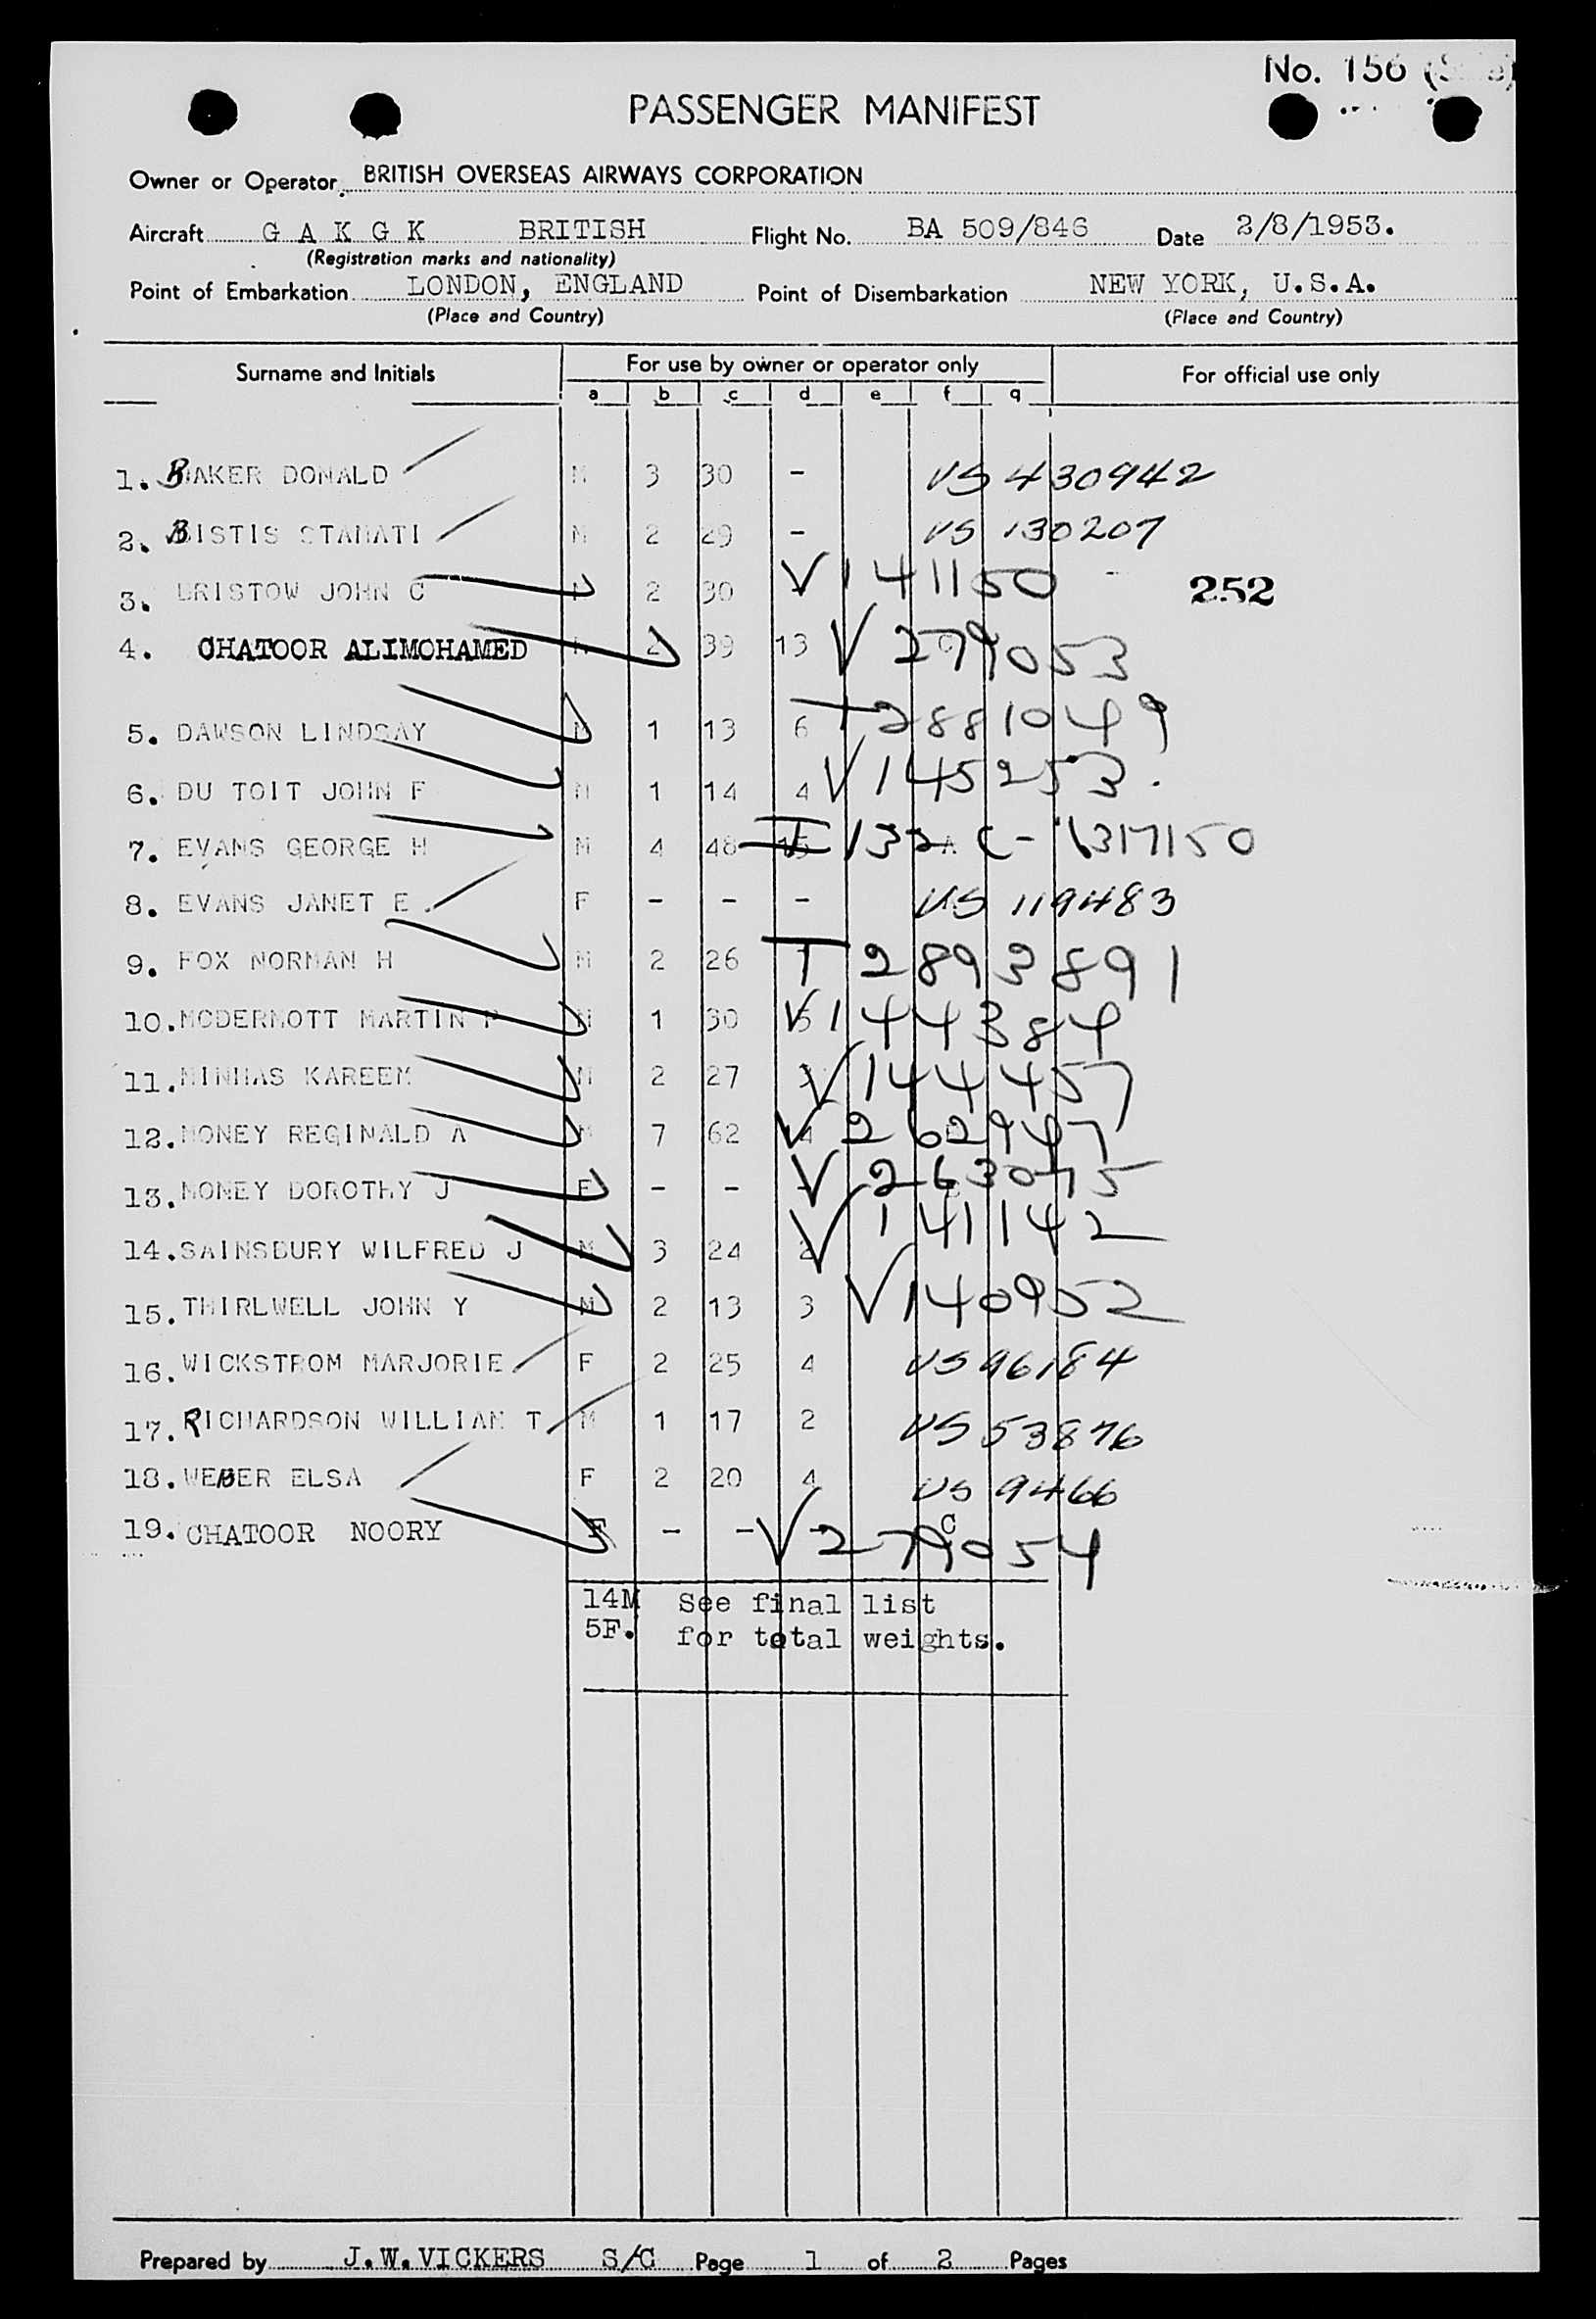 No. 156
PASSENGER MANIFEST
Owner or Operator BRITISH OVERSEAS AIRWAYS CORPORATION
Aircraft G A K G K BRITISH Flight No. BA 509/846 Date 2/8/1953.
(Registration marks and nationality)
Point of Embarkation LONDON, ENGLAND Point of Disembarkation NEW YORK, U.S.A.
(Place and Country) (Place and Country)
Surname and Initials For use by owner or operator only For official use only
a b c d e f g
1. BAKER DONALD M 3 30 - VS 430942
2. BISTIS STAMATI M 2 29 - VS 130207
3. BRISTOW JOHN C M 2 30 V 141150 252
4. CHATOOR ALIMOHAMED M 2 39 13 V 279053
5. DAWSON LINDSAY M 1 13 6 T 2881049
6. DU TOIT JOHN F M 1 14 4 V 145253.
7. EVANS GEORGE H M 4 48 15 I 132 A C- 6317150
8. EVANS JANET E. F - - - VS 119483
9. FOX NORMAN H M 2 26 T 2893891
10. MCDERMOTT MARTIN P M 1 30 5 V 144384
11. MINHAS KAREEM M 2 27 V 144457
12. MONEY REGINALD A M 7 62 V 262947
13. MONEY DOROTHY J F - - - V 263075
14. SAINSBURY WILFRED J M 3 24 2 V 141142
15. THIRLWELL JOHN Y M 2 13 3 V 140952
16. WICKSTROM MARJORIE F 2 25 4 VS 96184
17. RICHARDSON WILLIAM T M 1 17 2 VS 53876
18. WEBER ELSA F 2 20 4 VS 9466
19. CHATOOR NOORY F - - - C V 279054
14M See final list
5F. for total weights.
Prepared by J.W.VICKERS S/C Page 1 of 2 Pages